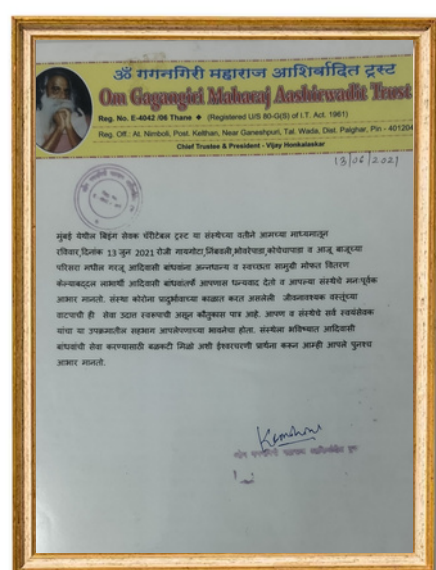 ॐ गगनगिरी महाराज आशिर्वादित ट्रस्ट
Om Gagangiri Maharaj Aashirwadit Trust
Reg. No. E-4042 /06 Thane ◆ (Registered U/S 80-G(S) of I.T. Act. 1961)
Reg. Off.: At. Nimboli, Post. Kelthan, Near Ganeshpuri, Tal. Wada, Dist. Palghar, Pin - 401204
Chief Trustee & President - Vijay Honkalaskar
13/06/2021
मुंबई येथील बिइंग सेवक चॅरीटेबल ट्रस्ट या संस्थेच्या वतीने आमच्या माध्यमातून
रविवार,दिनांक 13 जुन 2021 रोजी गायगोटा,निंबवली,भोवरेपाडा,कोपेचापाडा व आजू बाजूच्या
परिसरा मधील गरजू आदिवासी बांधवांना अन्नधान्य व स्वच्छता सामुग्री मोफत वितरण
केल्याबद्दल लाभार्थी आदिवासी बांधवांतर्फे आपणास धन्यवाद देतो व आपल्या संस्थेचे मनःपूर्वक
आभार मानतो. संस्था कोरोना प्रादुर्भावाच्या काळात करत असलेली जीवनावश्यक वस्तूंच्या
वाटपाची ही सेवा उदात्त स्वरूपाची असून कौतुकास पात्र आहे. आपण व संस्थेचे सर्व स्वयंसेवक
यांचा या उपक्रमातील सहभाग आपलेपणाच्या भावनेचा होता. संस्थेला भविष्यात आदिवासी
बांधवांची सेवा करण्यासाठी बळकटी मिळो अशी ईश्वरचरणी प्रार्थना करून आम्ही आपले पुनश्च
आभार मानतो.